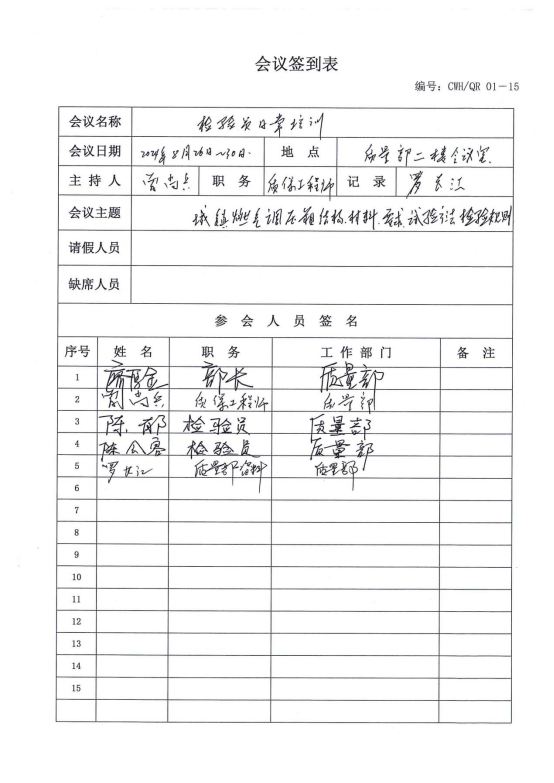 会议签到表
编号：CWH/QR 01－15
会议名称 检验员日常培训
会议日期 2024年8月26日~30日. 地 点 质量部二楼会议室
主 持 人 尚兵 职 务 质保工程师 记 录 罗长江
会议主题 城镇燃气调压箱结构.材料.要求.试验方法.检验规则
请假人员
缺席人员
参 会 人 员 签 名
序号 姓 名 职 务 工 作 部 门 备 注
1 部长 质量部
2 尚兵 质保工程师 质量部
3 陈.郁 检验员 质量部
4 陈公容 检验员 质量部
5 罗长江 质量部资料 质量部
6
7
8
9
10
11
12
13
14
15